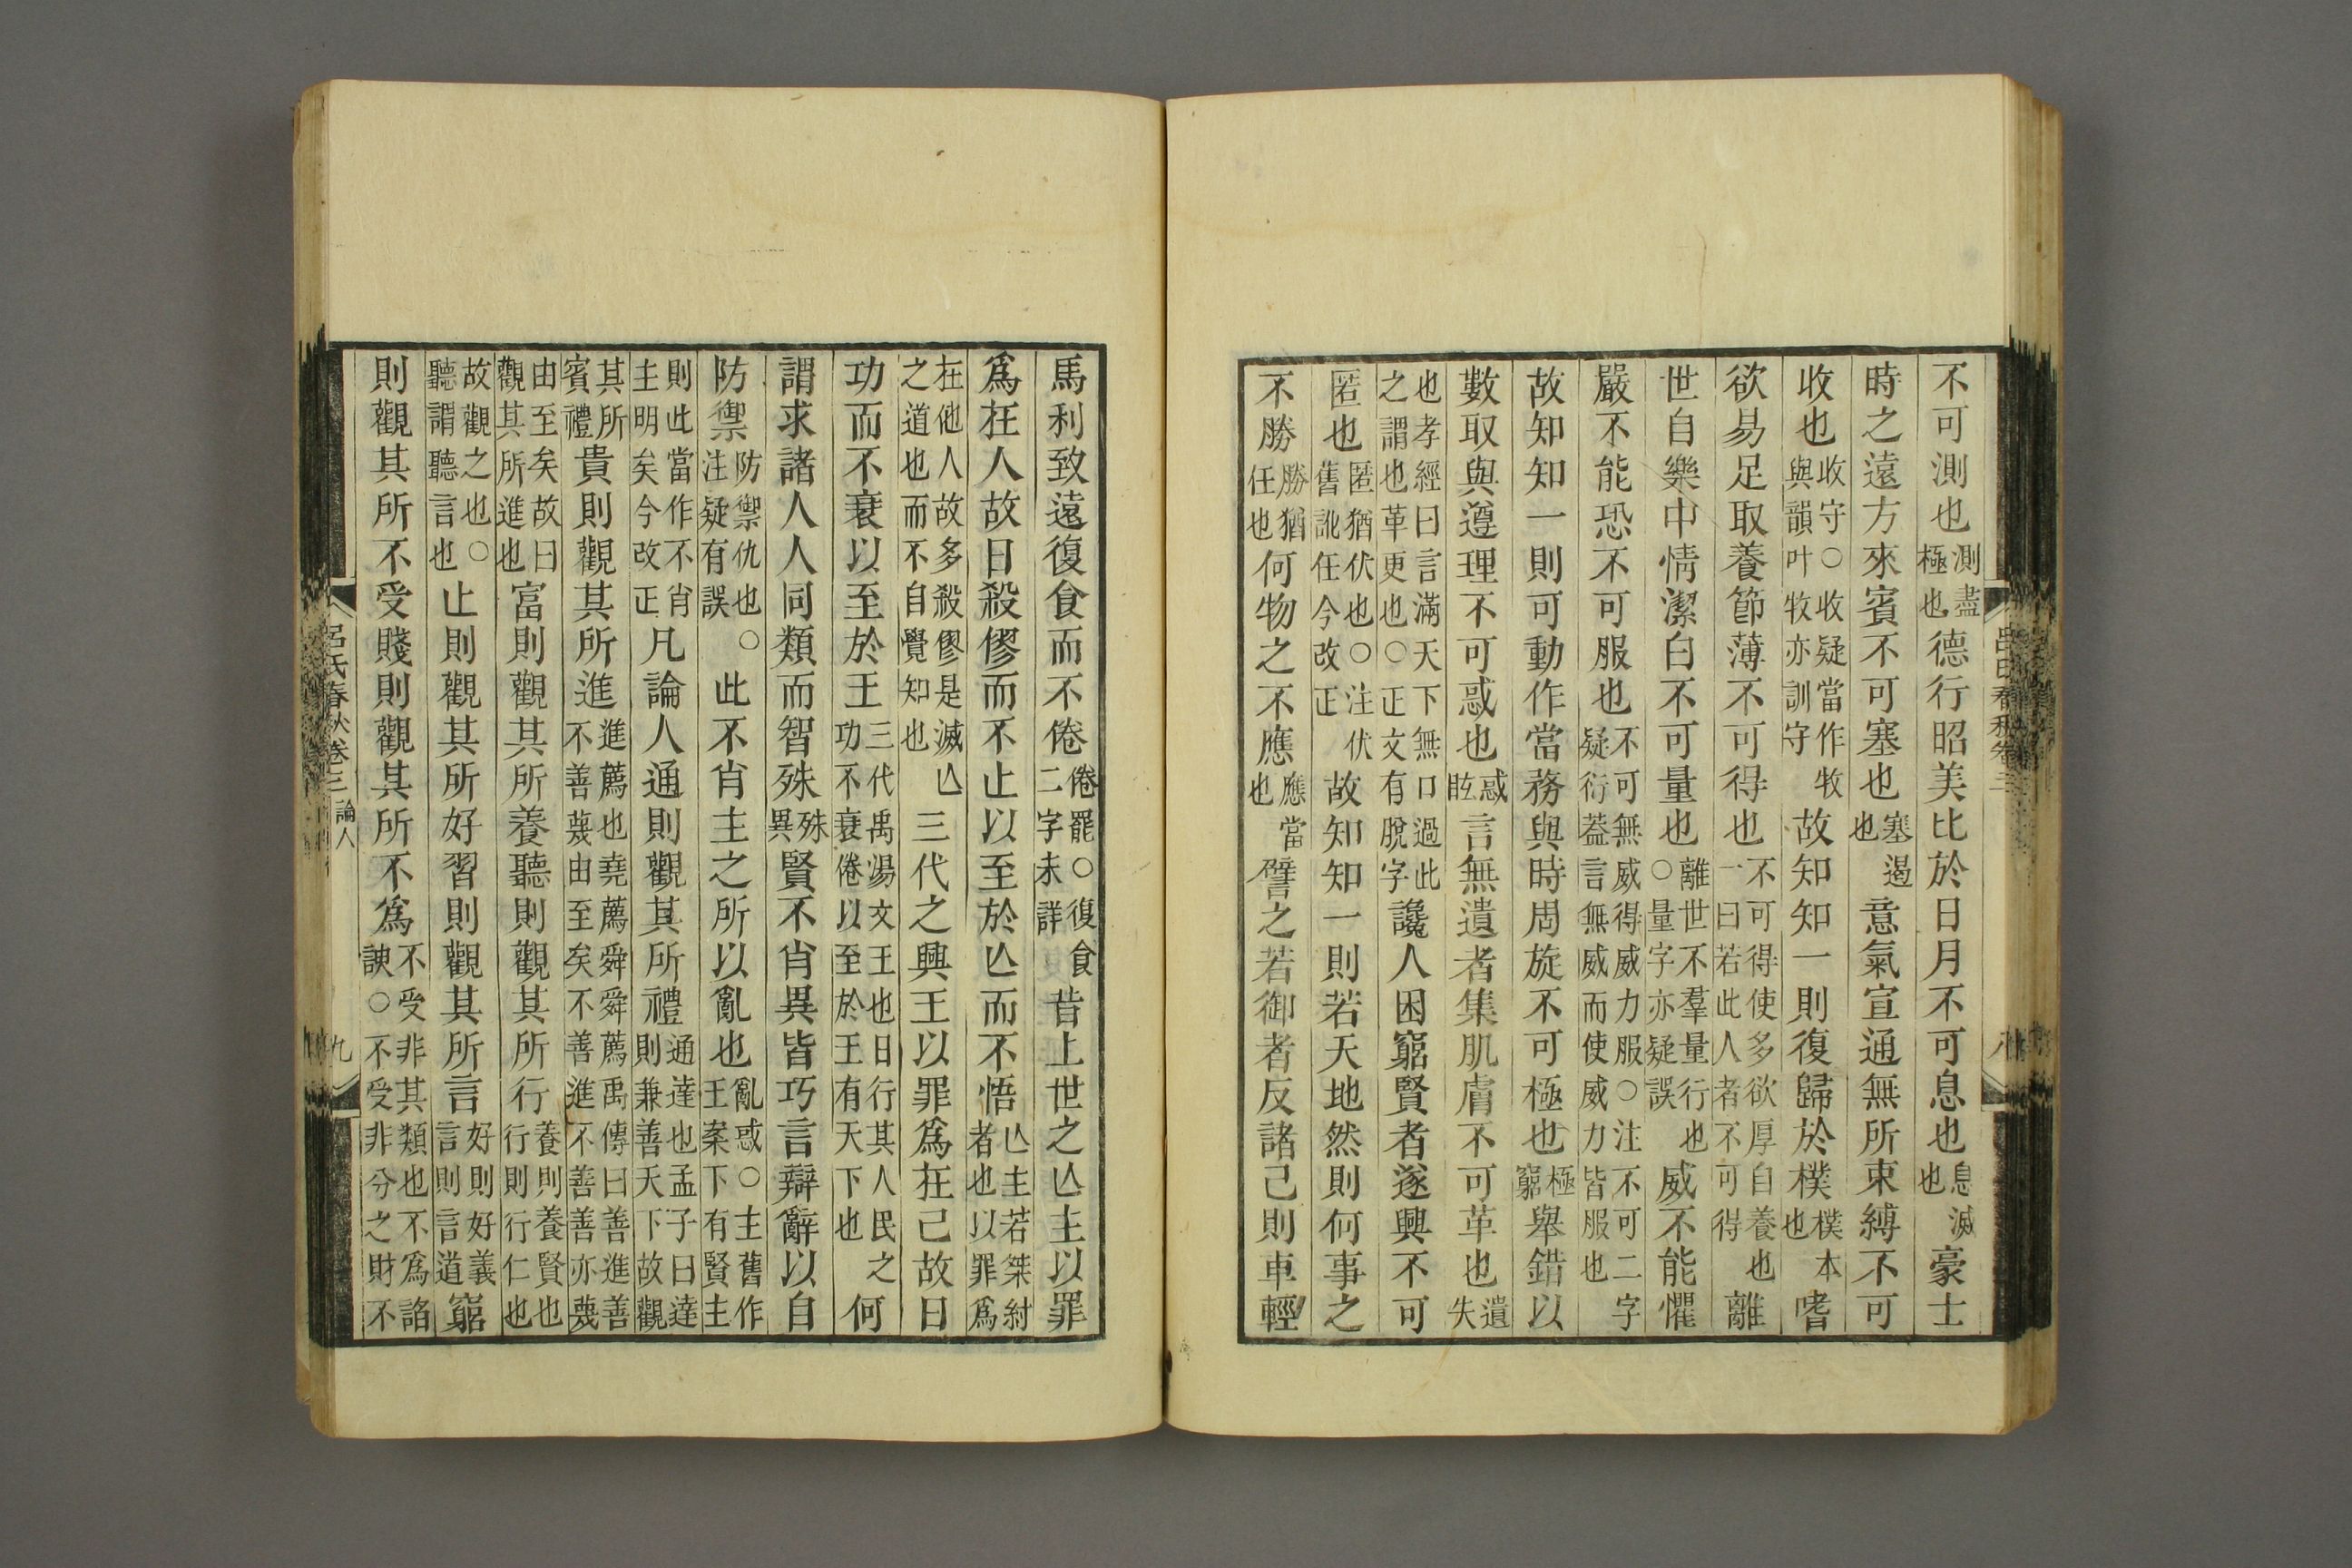 不可測也測盡極也德行昭美比於日月不可息也息滅也豪士
時之遠方來賓不可塞也塞遏也意氣宣通無所束縛不可
收也收守○收疑當作牧與韻叶牧亦訓守故知知一則復歸於樸樸本也嗜
欲易足取養節薄不可得也不可得使多欲厚自養也一曰若此人者不可得離
世自樂中情潔白不可量也離世不羣量行也○量字亦疑誤威不能懼
嚴不能恐不可服也不可無威得威力服○注不可二字疑衍葢言無威而使威力皆服也
故知知一則可動作當務與時周旋不可極也極窮舉錯以
數取與遵理不可惑也惑眩言無遺者集肌膚不可革也遺失
也孝經曰言滿天下無口過此之謂也革更也○正文有脫字讒人困窮賢者遂興不可
匿也匿猶伏也○注伏舊訛任今改正故知知一則若天地然則何事之
不勝勝猶任也何物之不應應當也譬之若御者反諸己則車輕
呂氏春秋卷三
八
馬利致遠復食而不倦倦罷○復食二字未詳昔上世之亾主以罪
爲在人故日殺僇而不止以至於亾而不悟亾主若桀紂者也以罪爲
在他人故多殺僇是滅亾之道也而不自覺知也三代之興王以罪爲在己故日
功而不衰以至於王三代禹湯文王也日行其人民之功不衰倦以至於王有天下也何
謂求諸人人同類而智殊殊異賢不肖異皆巧言辯辭以自
防禦防禦仇也○注疑有誤此不肖主之所以亂也亂惑○主舊作王案下有賢主
則此當作不肖主明矣今改正凡論人通則觀其所禮通達也孟子曰達則兼善天下故觀
其所賓禮貴則觀其所進進薦也堯薦舜舜薦禹傳曰善進善不善蔑由至矣不善進不善善亦蔑
由至矣故曰觀其所進也富則觀其所養聽則觀其所行養則養賢也行則行仁也
故觀之也○聽謂聽言也止則觀其所好習則觀其所言好則好義言則言道窮
則觀其所不受賤則觀其所不爲不受非其類也不爲諂諛○不受非分之財不
呂氏春秋卷三 論人
九